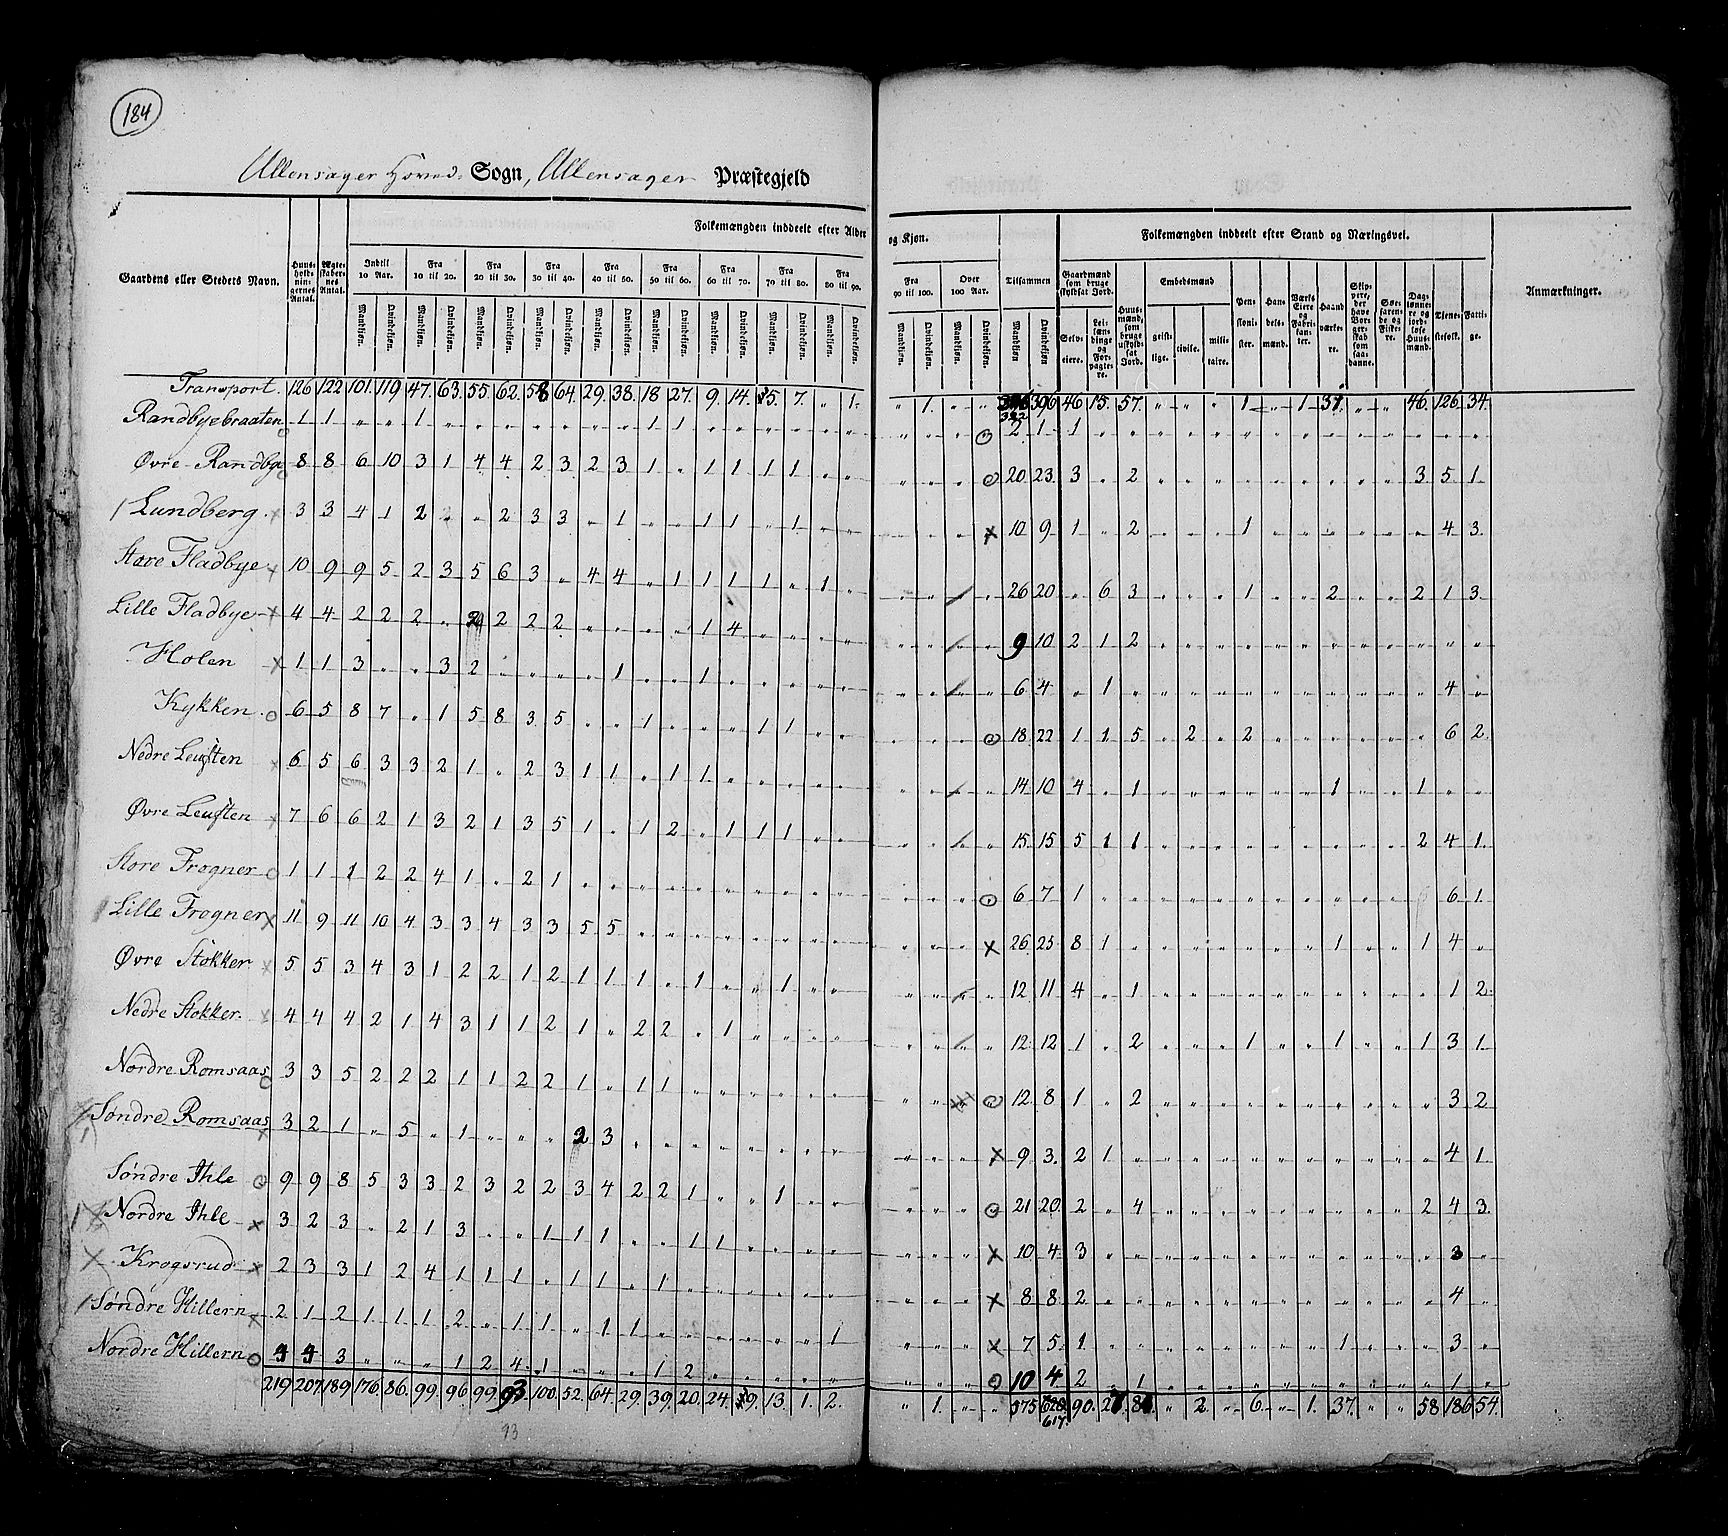 184
Ullensager Hoved Sogn, Ullensager Præstegjeld
Folkemængden inddeelt efter Alder og Kjøn.
Folkemængden inddeelt efter Stand og Næringsvei.
Gaardens eller Stedets Navn.
Huusholdningernes Antal.
Ægteskabernes Antal.
Indtil 10 Aar.
Fra 10 til 20.
Fra 20 til 30.
Fra 30 til 40.
Fra 40 til 50.
Fra 50 til 60.
Fra 60 til 70.
Fra 70 til 80.
Fra 80 til 90.
Fra 90 til 100.
Over 100 Aar.
Tilsammen
Mandkjøn. Qvindekjøn.
Gaardmænd som bruge skyldsat Jord.
Selveiere.
Leilændinge og Forpagtere.
Huusmænd, som bruge uskyldsat Jord.
Embedsmænd
geistlige.
civile.
militaire.
Pensionister.
Handelsmænd.
Værks Eiere og Fabrikanter.
Haandværkere.
Skippere, der have Borgerskab som saadanne.
Søefarende og Fiskere.
Dagelønnere og jordløse Huusmænd.
Tjenestefolk.
Fattige.
Anmærkninger.
Transport. 126 122 101. 119 47. 63. 55. 62. 58 64. 29. 38. 18 27. 9. 14. 15. 7. „ 1. „ 1. „ „ 396 46 15. 57. „ „ „ 1 „ 1 37. „ „ 46. 126. 34.
322
Randbyebraaten 1 1 „ „ 1 „ „ „ „ „ „ „ 1 1 „ „ „ „ „ „ „ „ „ 2 1 1
Øvre Randbye 8 8 6 10 3 1 4 4 2 3 2 3 1 „ 1 1 1 1 „ „ 20 23 3 „ 2 3 5 1
Lundberg 3 3 4 1 2 „ „ 2 3 3 „ 1 „ „ 1 1 „ 1 „ „ 10 9 1 „ 2 1 4 3
Store Fladbye 10 9 9 5 2 3 5 6 3 „ 4 4 „ 1 1 1 1 „ 1 „ 26 20 „ 6 3 1 2 2 1 3
Lille Fladbye 4 4 2 2 2 „ 2 2 2 2 „ „ „ „ 1 4 „ „ „ „ 9 10 2 1 2
Holen 1 1 3 „ „ 3 2 „ „ „ „ 1 „ „ 1 „ „ „ „ „ 6 4 „ 1 4 „
Kykken 6 5 8 7 „ 1 5 8 3 5 „ „ 1 „ „ „ 1 1 „ „ 18 22 1 1 5 „ 2 „ 2 6 2
Nedre Leusten 6 5 6 3 3 2 1 „ 2 3 1 1 „ 1 1 „ „ „ „ „ 14 10 4 „ 1 1 1 „ „
Øvre Leusten 7 6 6 2 1 3 2 1 3 5 1 „ 1 2 „ 1 1 1 „ „ 15 15 5 1 1 2 4 1
Store Frogner 1 1 1 2 2 4 1 „ 2 1 „ „ „ „ „ „ „ „ „ „ 6 7 1 6 1
Lille Frogner 11 9 11 10 4 3 3 4 3 3 5 5 „ „ „ „ „ „ „ „ 26 25 8 1 1 1 4 „
Øvre Stokker 5 5 3 4 3 1 2 2 1 2 1 1 1 „ 1 „ „ 1 „ „ 12 11 4 „ 1 1 2
Nedre Stokker. 4 4 4 2 1 4 3 1 1 2 1 „ 2 2 „ 1 „ „ „ „ 12 12 1 „ 2 1 1 1 3 1
Nordre Romsaas 3 3 5 2 2 2 1 1 2 2 1 „ 1 1 „ „ „ „ „ „ 12 8 1 „ 2 3 2
Søndre Romsaas 3 2 1 „ 5 „ 1 „ „ „ 2 3 „ „ „ „ „ „ „ „ 9 3 2 1 4 1
Søndre Ihle 9 9 8 5 3 3 2 3 2 2 3 4 2 2 1 „ „ 1 „ „ 21 20 2 „ 4 2 4 3
Nordre Ihle 3 2 3 „ 2 1 3 „ „ 1 1 1 „ „ 1 1 „ „ „ „ 10 4 3 3 „
Krogsrud 2 3 3 1 2 4 1 1 1 „ 1 1 „ 1 „ „ „ „ „ „ 8 8 2 4 „
Søndre Hillern 2 1 2 1 1 1 2 „ 1 1 „ 1 1 „ „ „ „ „ „ 1 7 5 1 1 3 „
Nordre Hillern 4 4 3 „ „ „ 1 2 4 1 „ „ „ 1 2 „ „ „ „ „ 10 4 2 „ 1 1 „
219. 207. 189. 176. 86. 99. 96 99. 93. 100. 52. 64. 29. 39. 20. 24. 19. 13. 1. 2. „ 1. „ „ 575 628. 90. „ 2 „ 6 „ 1. 37. „ „ 58 186 54.
617
93